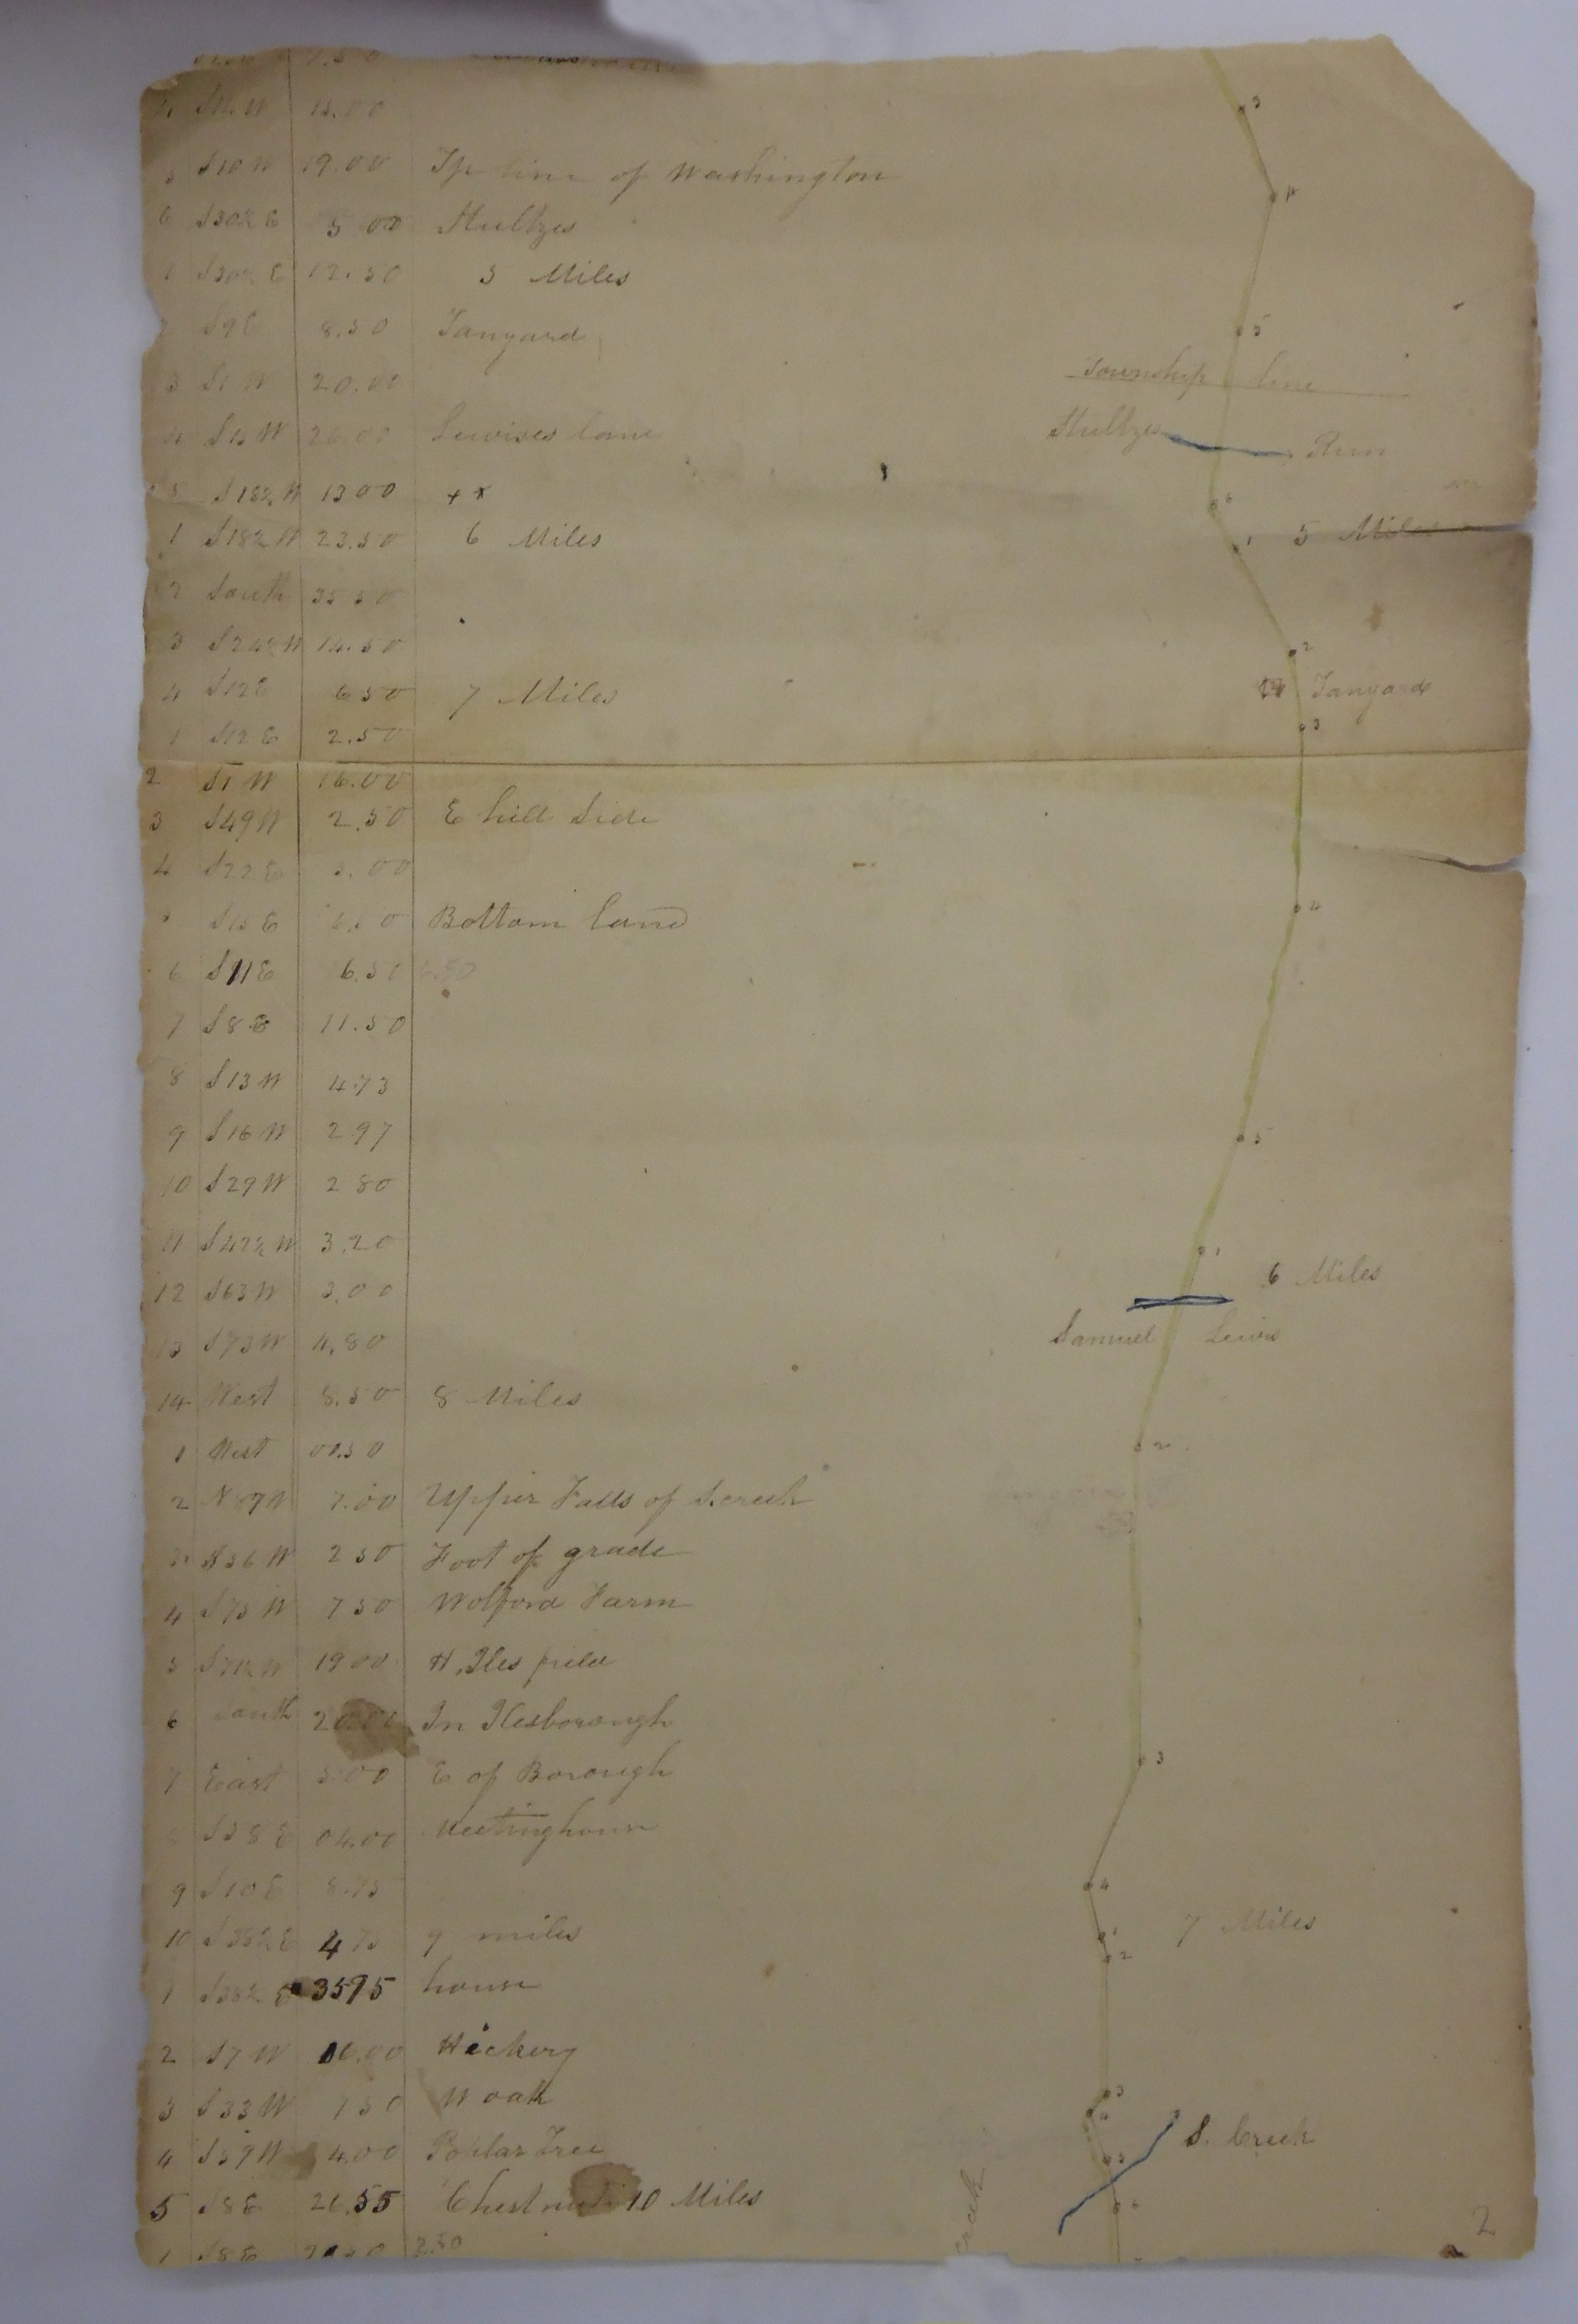 7.50
S14W 14.00
5 S10W 19.00 Tp line of Washington
6 S30½E 5 00 Stultzes
1 S30½E 12.50 5 Miles
S9E 8.50 Tanyard
3 S1W 20.00
4 S15W 26.00 Lewises lane
5 S18½W 13 00 + x
1 S18½W 23.50 6 Miles
2 South 35 50
3 S24½W 14.50
4 S12E 6 50 7 Miles
1 S12E 2.50
2 S1W 16.00
3 S49W 2.50 E hill Side
4 S22E 3.00
S15E Bottom land
6 S11E 6.50
7 S8E 11.50
8 S13W 4.73
9 S16W 2 97
10 S29W 2 80
11 S42½W 3.20
12 S63W 3.00
13 S73W 4.80
14 West 8.50 8 Miles
1 West 01.50
2 N87W 7.00 Upper Falls of S.creek
3 S56W 2 50 Foot of grade
4 S75W 7 50 Wolford Farm
5 S71½W 19 00 H. Iles field
6 South In Ilesborough
7 East 5.00 E of Borough
8 S58E 04.00 Meetinghouse
9 S10E 8.75
10 S38½E 4 75 9 miles
1 S38½E 3595 house
2 S7W 16.00 Hickery
3 S33W 1 50 W oak
4 S59W 4.00 Poplar Tree
5 S8E 26.55 Chestnut 10 Miles
1 S8E 2.50
3
4
5
Township line
Stultzes Run
6
1 5 Miles
2
Tanyard
3
4
5
1
6 Miles
Samuel Lewis
2
3
4
1 7 Miles
2
3
4
S. Creek
5
6
creek
2